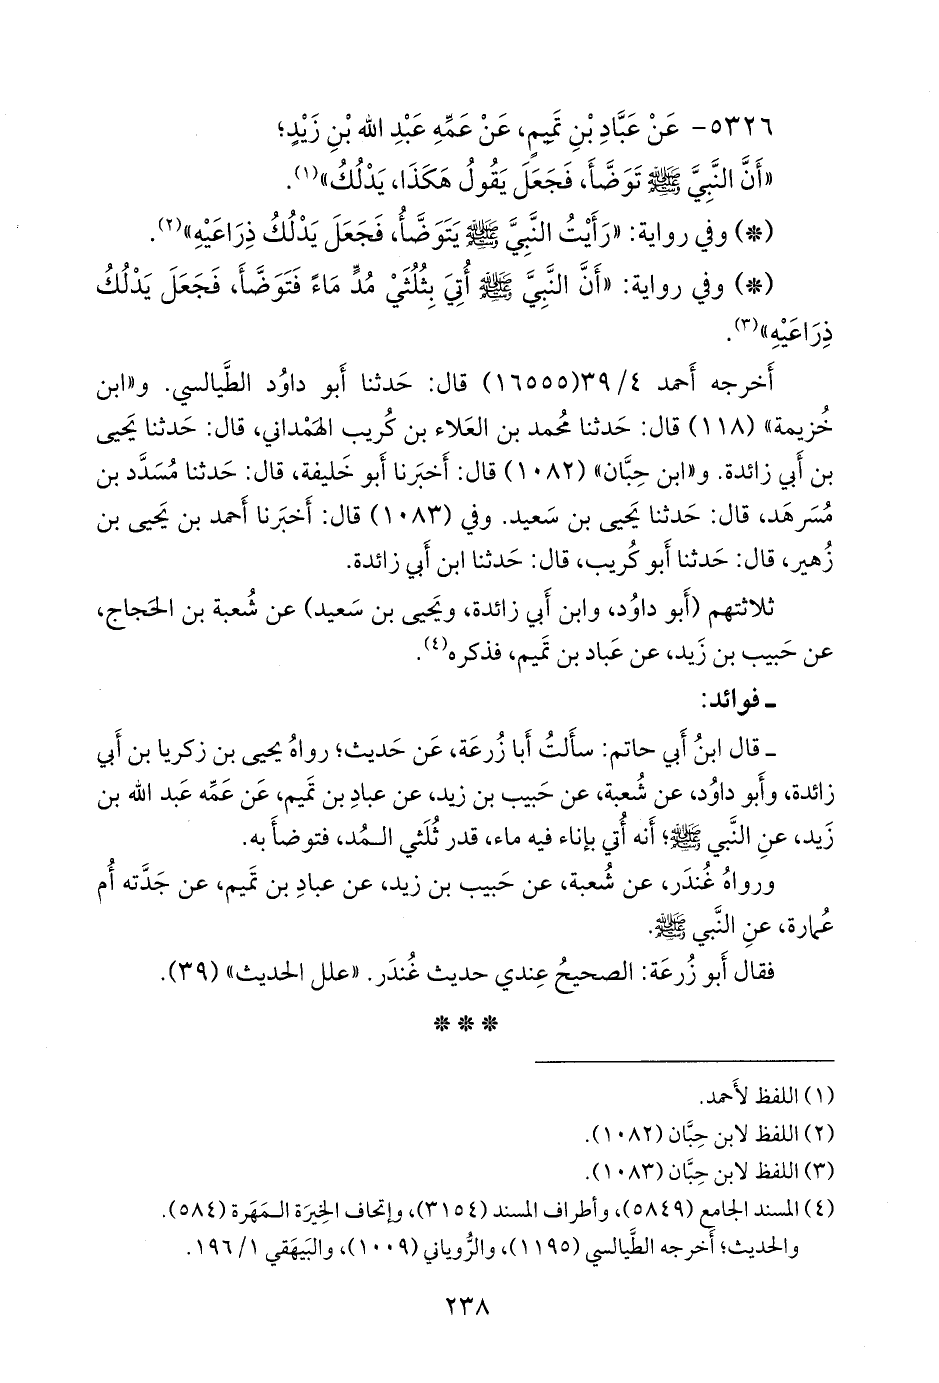 ٥٣٢٦- عَنْ عَبَّادِ بْنِ تَمِيمٍ، عَنْ عَمِّهِ عَبْدِ الله بْنِ زَيْدٍ؛
«أَنَّ النَّبِيَّ ﷺ تَوَضَّأَ، فَجَعَلَ يَقُولُ هَكَذَا، يَدْلُكُ»(١).
(*) وفي رواية: «رَأَيْتُ النَّبِيَّ ﷺ يَتَوَضَّأُ، فَجَعَلَ يَدْلُكُ ذِرَاعَيْهِ»(٢).
(*) وفي رواية: «أَنَّ النَّبِيَّ ﷺ أُتِيَ بِثُلُثَيْ مُدٍّ مَاءً فَتَوَضَّأَ، فَجَعَلَ يَدْلُكُ
ذِرَاعَيْهِ»(٣).
أَخرجه أَحمد ٤/ ٣٩(١٦٥٥٥) قال: حَدثنا أَبو داوُد الطَّيالسي. و«ابن
خُزيمة» (١١٨) قال: حَدثنا مُحمد بن العَلاء بن كُريب الهَمْداني، قال: حَدثنا يَحيى
بن أَبي زائدة. و«ابن حِبَّان» (١٠٨٢) قال: أَخبَرنا أَبو خَليفة، قال: حَدثنا مُسَدَّد بن
مُسَرهَد، قال: حَدثنا يَحيى بن سَعيد. وفي (١٠٨٣) قال: أَخبَرنا أَحمد بن يَحيى بن
زُهير، قال: حَدثنا أَبو كُريب، قال: حَدثنا ابن أَبي زائدة.
ثلاثتهم (أَبو داوُد، وابن أَبي زائدة، ويَحيى بن سَعيد) عن شُعبة بن الحَجاج،
عن حَبيب بن زَيد، عن عَباد بن تَميم، فذكره(٤).
ـ فوائد:
ـ قال ابنُ أَبي حاتم: سأَلتُ أَبا زُرعَة، عَن حَديث؛ رواهُ يحيى بن زكريا بن أَبي
زائدة، وأَبو داوُد، عن شُعبة، عن حَبيب بن زيد، عن عبادِ بن تَميم، عَن عَمِّه عَبد الله بن
زَيد، عنِ النَّبي ﷺ؛ أَنه أُتي بإناء فيه ماء، قدر ثُلَثي الـمُد، فتوضأَ به.
ورواهُ غُندَر، عن شُعبة، عن حَبيب بن زيد، عن عبادِ بن تَميم، عن جَدَّته أُم
عُمارة، عنِ النَّبي ﷺ.
فقال أَبو زُرعَة: الصحيحُ عِندي حديث غُندَر. «علل الحديث» (٣٩).
* * *
(١) اللفظ لأَحمد.
(٢) اللفظ لابن حِبَّان (١٠٨٢).
(٣) اللفظ لابن حِبَّان (١٠٨٣).
(٤) المسند الجامع (٥٨٤٩)، وأطراف المسند (٣١٥٤)، وإتحاف الخِيرَة الـمَهَرة (٥٨٤).
والحديث؛ أَخرجه الطَّيالسي (١١٩٥)، والرُّوياني (١٠٠٩)، والبَيهَقي ١/ ١٩٦.
٢٣٨